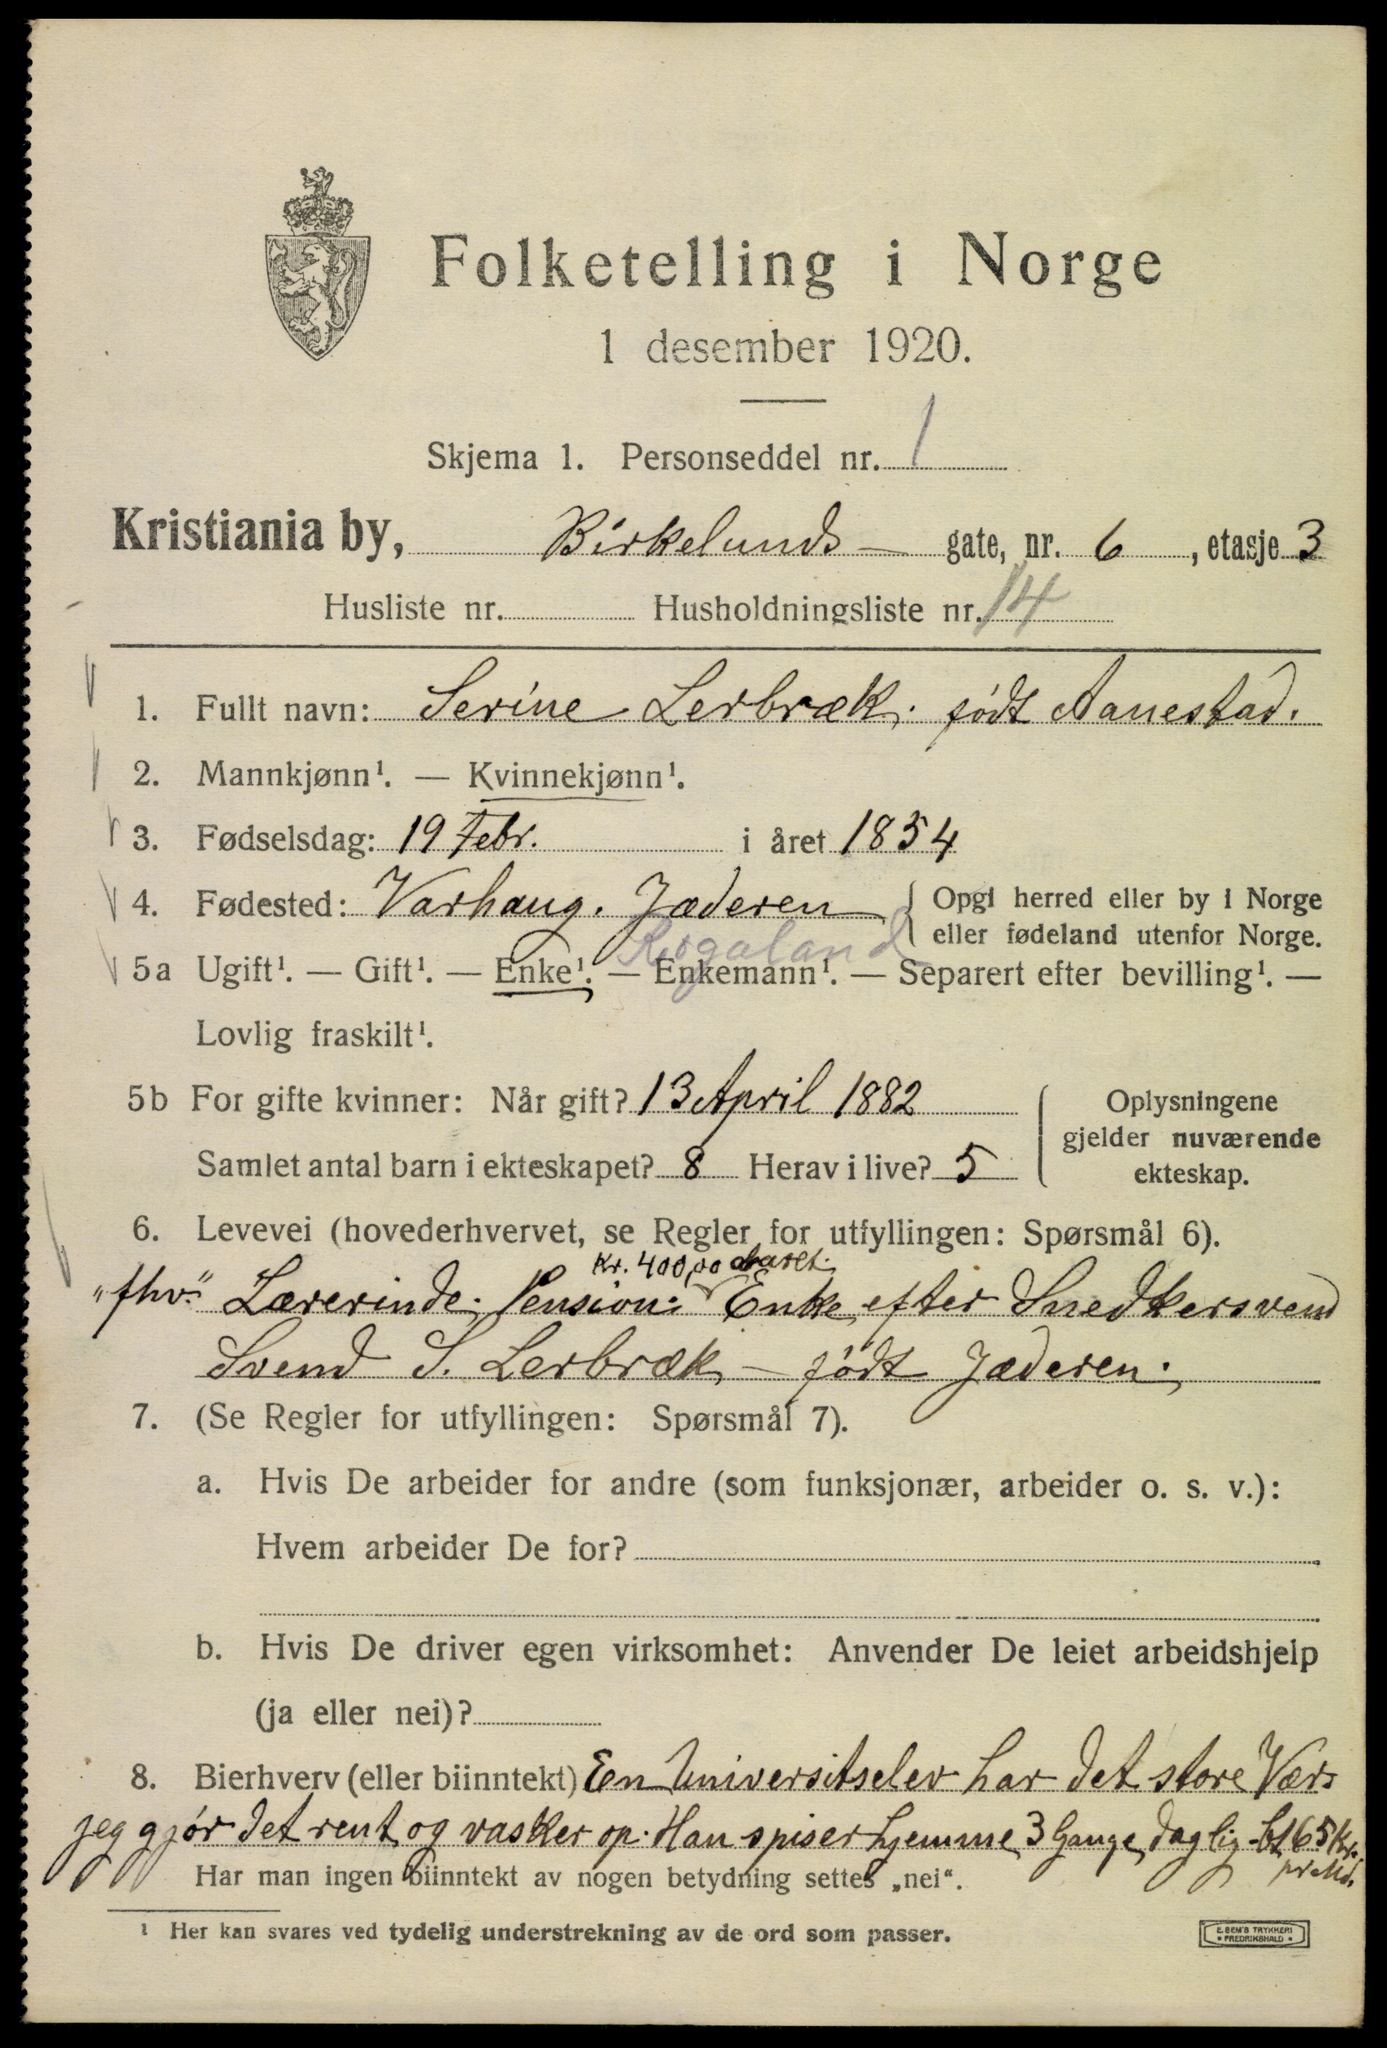 Folketelling i Norge
1 desember 1920.
Skjema 1. Personseddel nr. 1
Kristiania by, Birkelunds- gate, nr. 6, etasje 3
Husliste nr. Husholdningsliste nr. 14
1. Fullt navn: Serine Lerbræk. født Aanestad.
2. Mannkjønn¹. — Kvinnekjønn¹.
3. Fødselsdag: 19 Febr. i året 1854
4. Fødested: Varhaug. Jæderen { Opgi herred eller by i Norge
eller fødeland utenfor Norge.
Rogaland
5a Ugift¹. — Gift¹. — Enke¹. — Enkemann¹. — Separert efter bevilling¹. —
Lovlig fraskilt¹.
5b For gifte kvinner: Når gift? 13 April 1882
Samlet antal barn i ekteskapet? 8 Herav i live? 5
Oplysningene
gjelder nuværende
ekteskap.
6. Levevei (hovederhvervet, se Regler for utfyllingen: Spørsmål 6).
Kr. 400,00 aaret.
"fhv." Lærerinde. Pension: Enke efter Snedkersvend
Svend S. Lerbræk — født Jæderen.
7. (Se Regler for utfyllingen: Spørsmål 7).
a. Hvis De arbeider for andre (som funksjonær, arbeider o. s. v.):
Hvem arbeider De for?
b. Hvis De driver egen virksomhet: Anvender De leiet arbeidshjelp
(ja eller nei)?
8. Bierhverv (eller biinntekt) En Universitselev har det store Vær.
jeg gjør det rent og vasker op. Han spiser hjemme 3 Gange daglig bt 65 Kr.
pr Md.
Har man ingen biinntekt av nogen betydning settes „nei“.
¹ Her kan svares ved tydelig understrekning av de ord som passer.
E. SEM'S TRYKKERI
• FREDRIKSHALD •